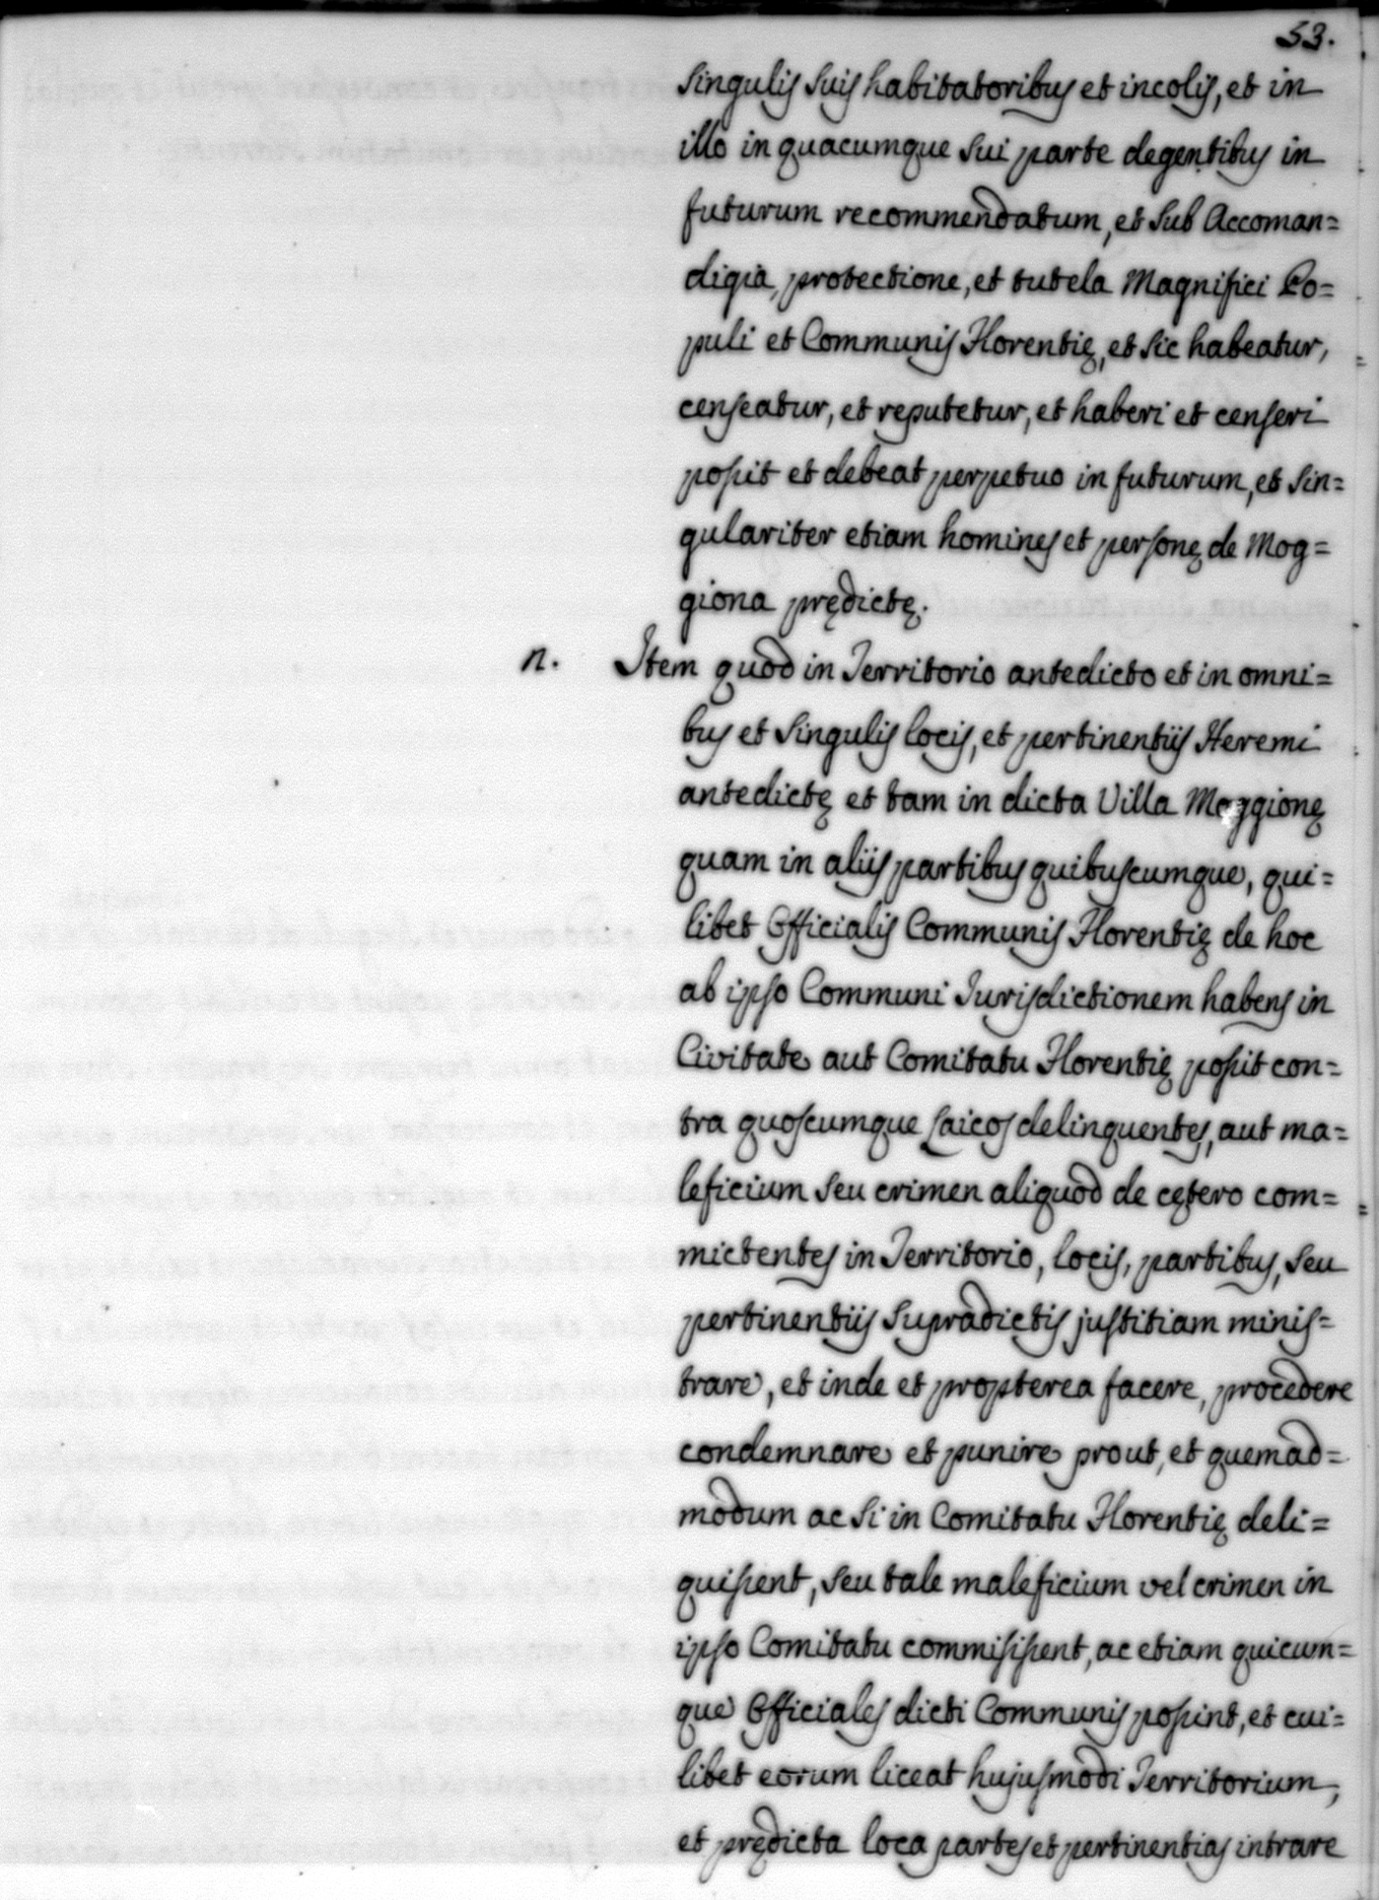 53.
singulis suis habitatoribus et incolis, et in
illo in quacumque sui parte degentibus in
futurum recommendatum, et sub Accoman=
digia, protectione, et tutela Magnifici Po=
puli et Communis Florentię, et sic habeatur,
censeatur, et reputetur, et haberi et censeri
possit et debeat perpetuo in futurum, et sin=
gulariter etiam homines et personę de Mog=
giona prędictę.
n. Item quod in Territorio antedicto et in omni=
bus et singulis locis, et pertinentiis Heremi
antedictę et tam in dicta Villa Moggionę
quam in aliis partibus quibuscumque, qui=
libet Officialis Communis Florentię de hoc
ab ipso Communi Jurisdictionem habens in
Civitate aut Comitatu Florentię possit con=
tra quoscumque Laicos delinquentes, aut ma=
leficium seu crimen aliquod de cętero com=
mictentes in Territorio, locis, partibus, seu
pertinentiis supradictis justitiam minis=
trare, et inde et propterea facere, procedere
condemnare et punire prout, et quemad=
modum ac si in Comitatu Florentię deli=
quissent, seu tale maleficium vel crimen in
ipso Comitatu commisissent, ac etiam quicum=
que Officiales dicti Communis possint, et cui=
libet eorum liceat hujusmodi Territorium,
et prędicta loca partes et pertinentias intrare